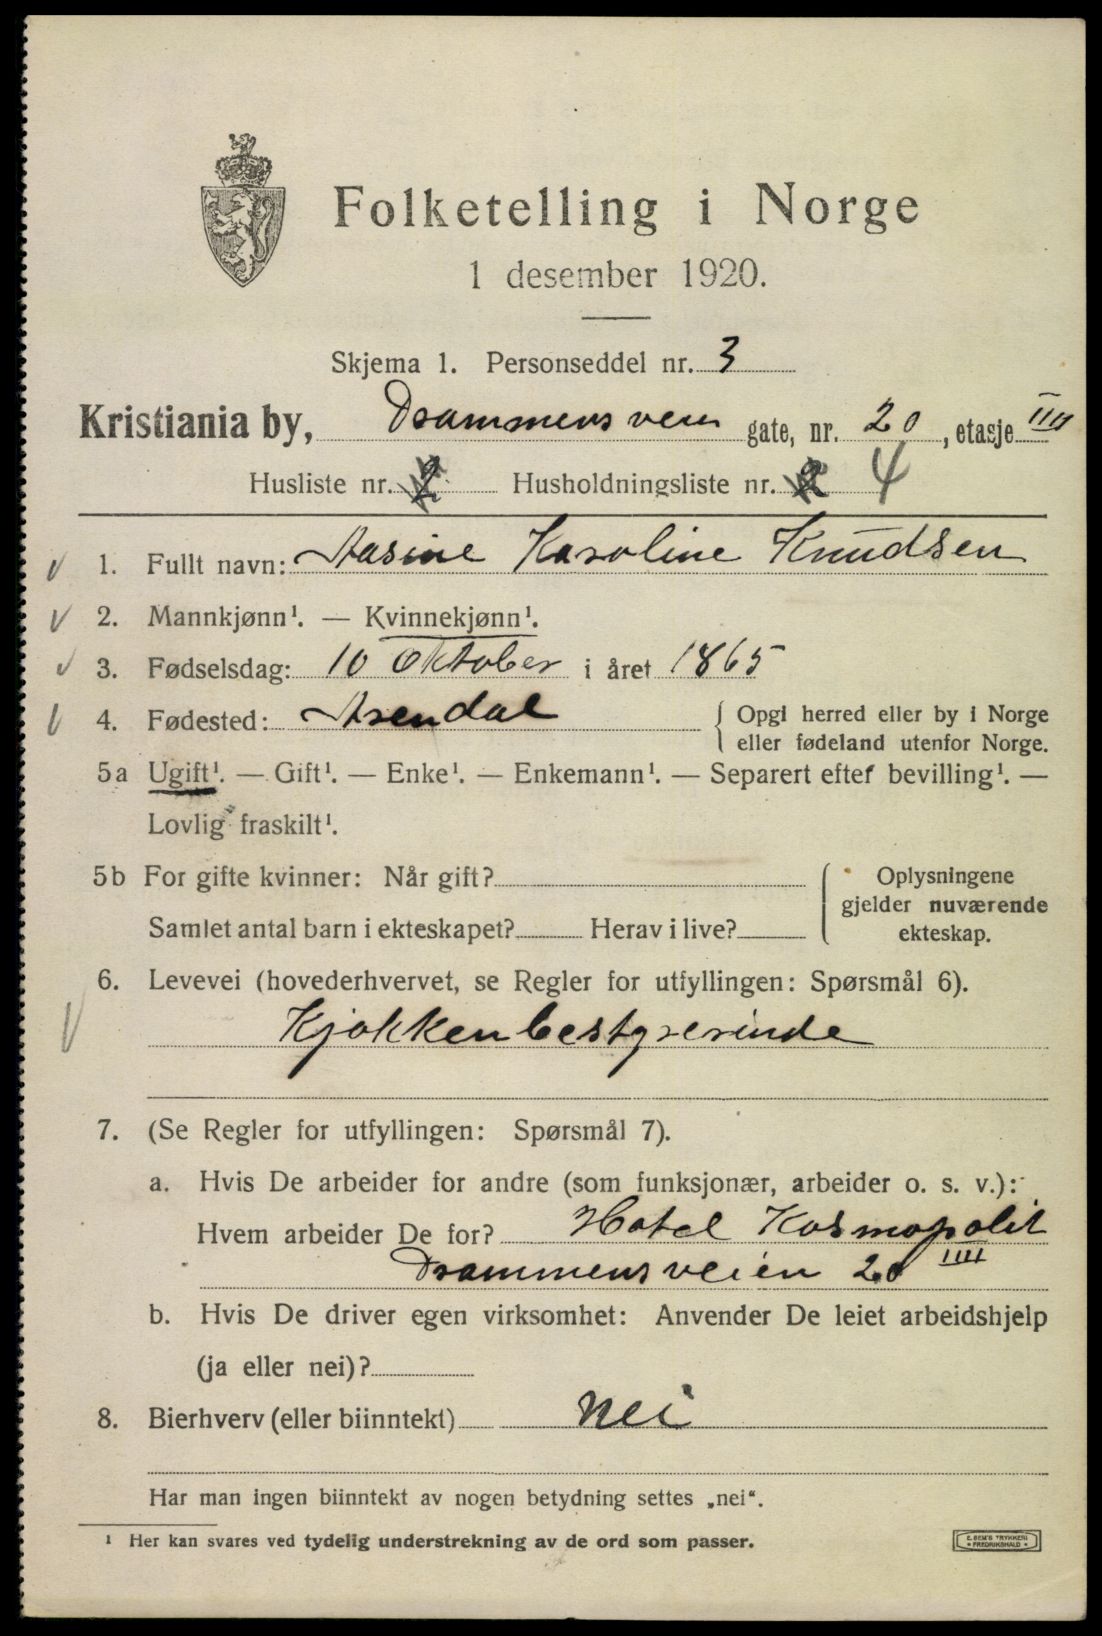 Folketelling i Norge
1 desember 1920.
Skjema 1. Personseddel nr. 3
Kristiania by, Drammensveien gate, nr. 20, etasje IIII
Husliste nr. 2 Husholdningsliste nr. 2 4
1. Fullt navn: Aasine Karoline Knudsen
2. Mannkjønn¹. — Kvinnekjønn¹.
3. Fødselsdag: 10 Oktober i året 1865
4. Fødested: Arendal { Opgi herred eller by i Norge
eller fødeland utenfor Norge.
5a Ugift¹. — Gift¹. — Enke¹. — Enkemann¹. — Separert efter bevilling¹. —
Lovlig fraskilt¹.
5b For gifte kvinner: Når gift? { Oplysningene
gjelder nuværende
Samlet antal barn i ekteskapet? Herav i live? ekteskap.
6. Levevei (hovederhvervet, se Regler for utfyllingen: Spørsmål 6).
Kjøkkenbestyrerinde
7. (Se Regler for utfyllingen: Spørsmål 7).
a. Hvis De arbeider for andre (som funksjonær, arbeider o. s. v.):
Hvem arbeider De for? Hotel Kosmopolit
Drammensveien 20 IIII
b. Hvis De driver egen virksomhet: Anvender De leiet arbeidshjelp
(ja eller nei)?
8. Bierhverv (eller biinntekt) nei
Har man ingen biinntekt av nogen betydning settes „nei“.
¹ Her kan svares ved tydelig understrekning av de ord som passer.
E. SEM'S TRYKKERI
• FREDRIKSHALD •